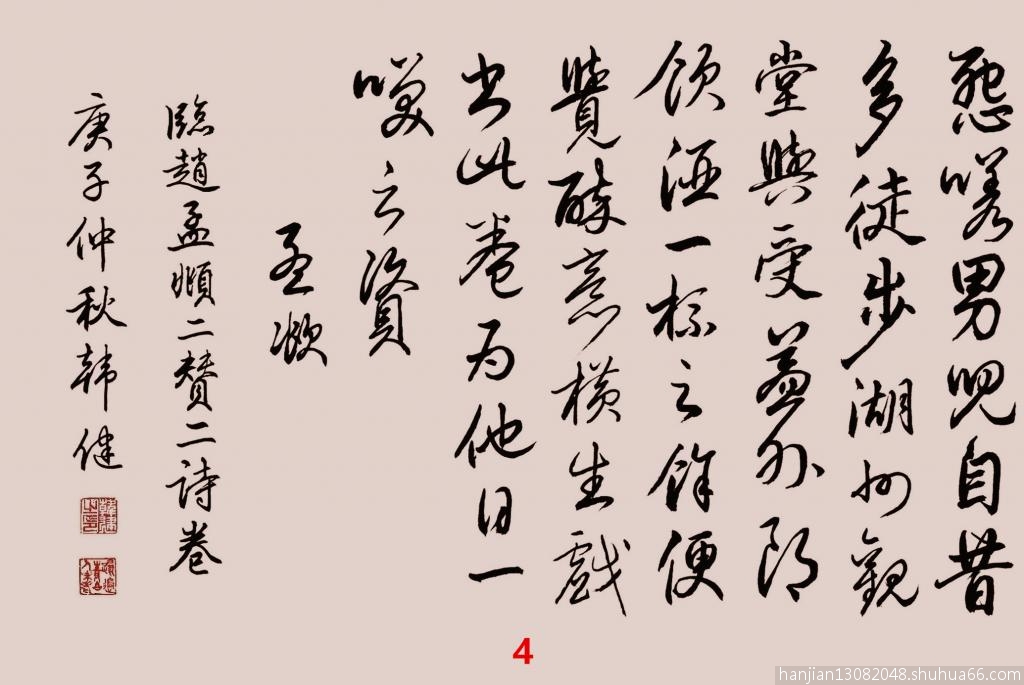 怨嗟男兒自昔
多徒步湖州觀
堂與受益外郎
飲酒一杯之餘便
覺醉意橫生戲
書此卷为他日一
㗛之資
孟頫
臨趙孟頫二贊二詩卷
庚子仲秋韓健
4
hanjian13082048.shuhua66.com